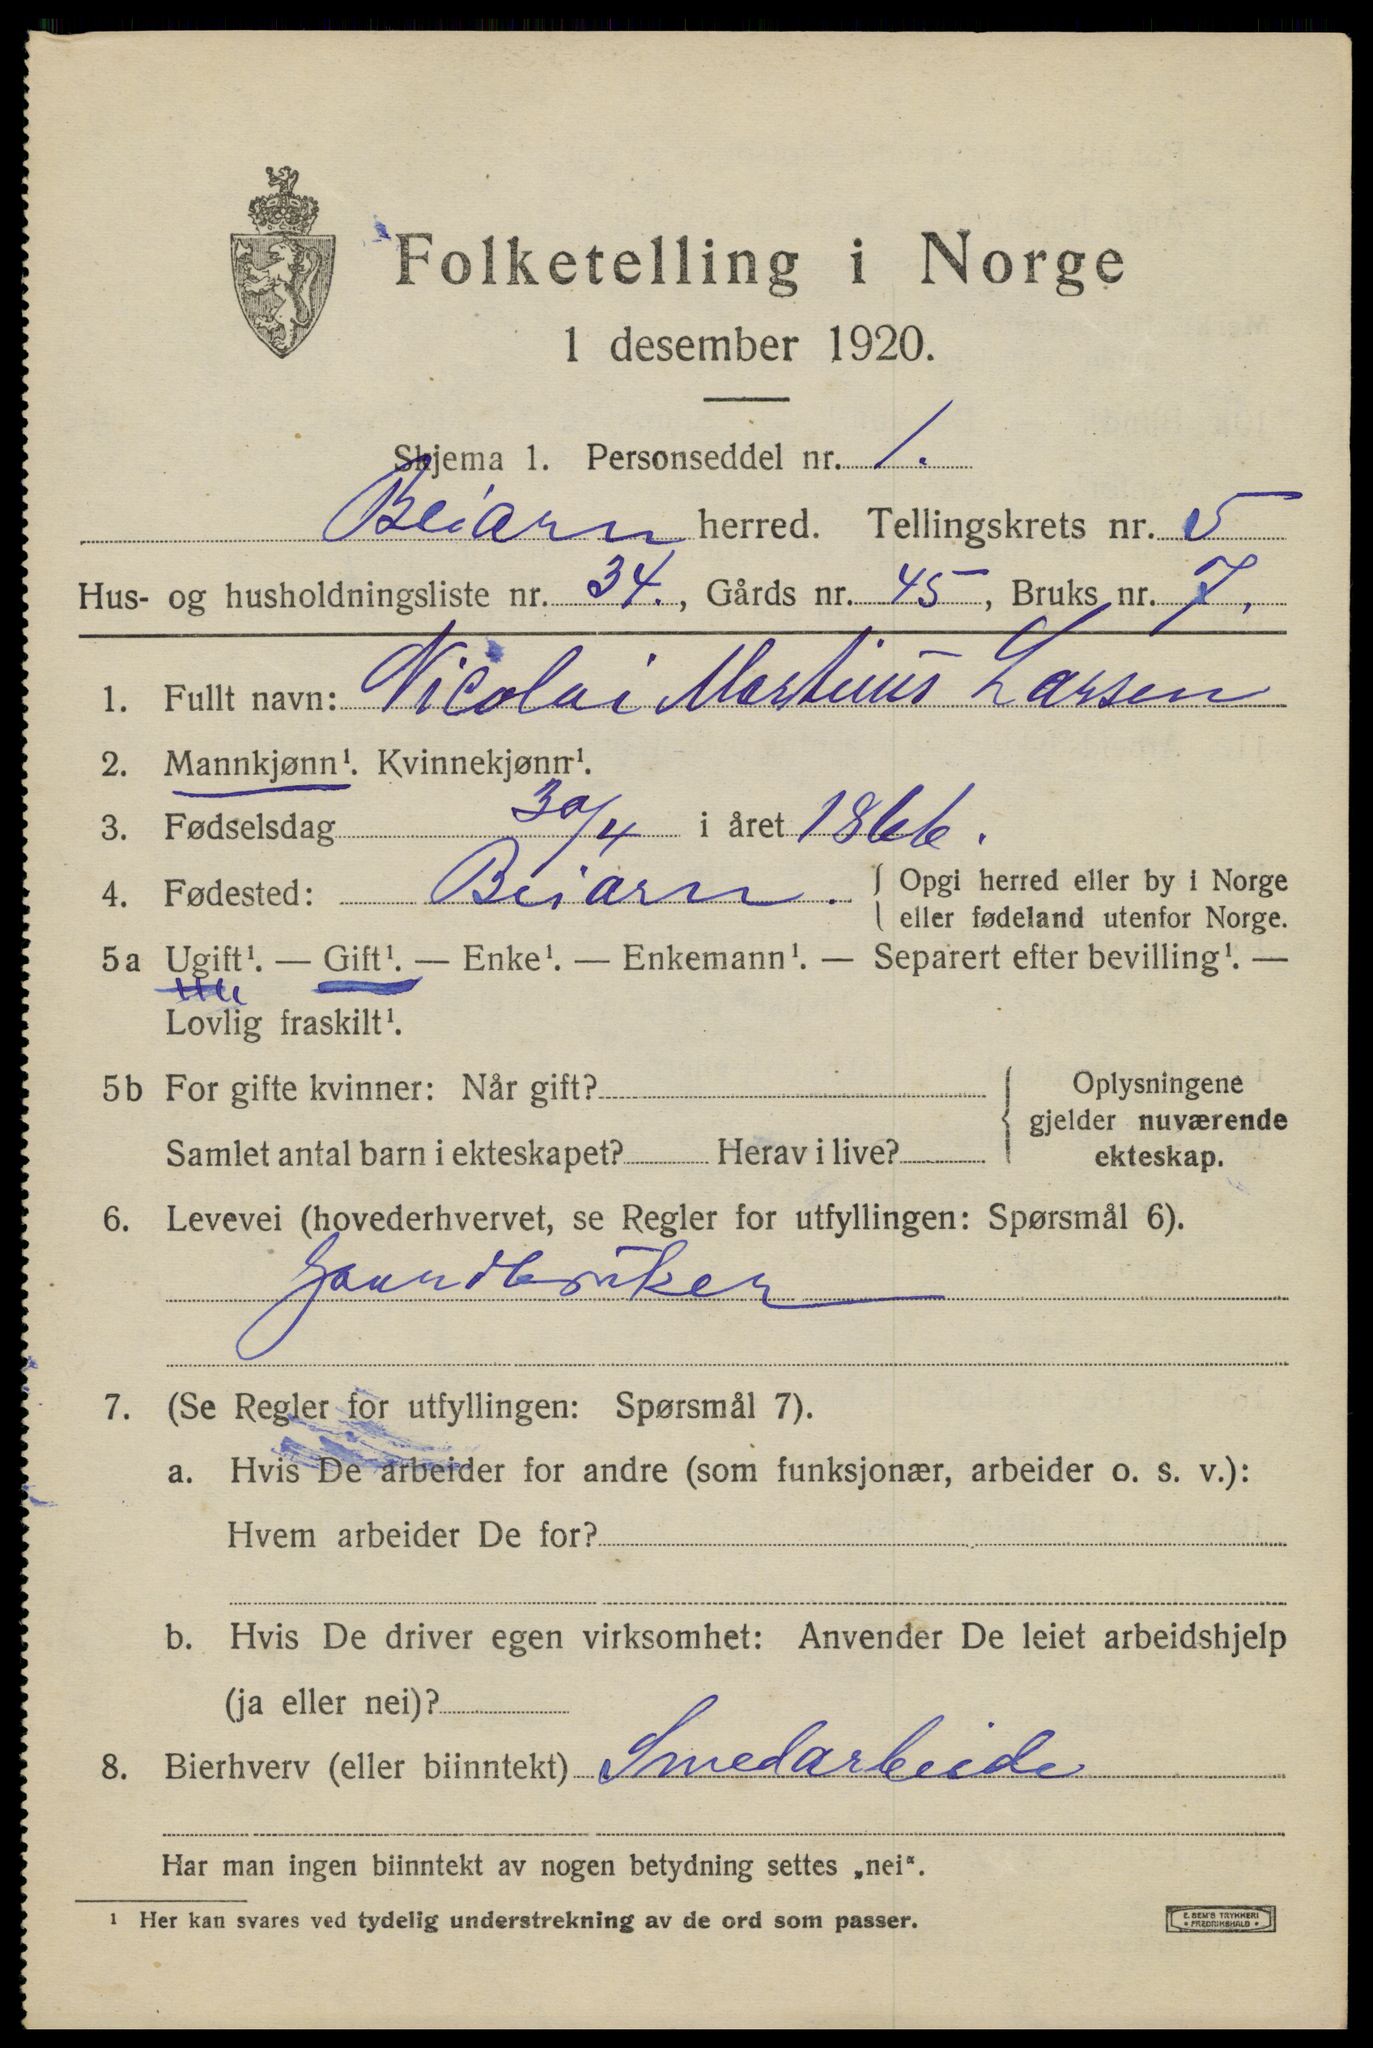 Folketelling i Norge
1 desember 1920.
Skjema 1. Personseddel nr. 1.
Beiarn herred. Tellingskrets nr. 5
Hus- og husholdningsliste nr. 34., Gårds nr. 45, Bruks nr. 7.
1. Fullt navn: Nicolai Martinus Larsen
2. Mannkjønn¹. Kvinnekjønn¹.
3. Fødselsdag 30/4 i året 1866.
4. Fødested: Beiarn. { Opgi herred eller by i Norge
eller fødeland utenfor Norge.
5a Ugift¹. — Gift¹. — Enke¹. — Enkemann¹. — Separert efter bevilling¹. —
Lovlig fraskilt¹.
5b For gifte kvinner: Når gift? { Oplysningene
gjelder nuværende
Samlet antal barn i ekteskapet? Herav i live? ekteskap.
6. Levevei (hovederhvervet, se Regler for utfyllingen: Spørsmål 6).
Gaardbruker
7. (Se Regler for utfyllingen: Spørsmål 7).
a. Hvis De arbeider for andre (som funksjonær, arbeider o. s. v.):
Hvem arbeider De for?
b. Hvis De driver egen virksomhet: Anvender De leiet arbeidshjelp
(ja eller nei)?
8. Bierhverv (eller biinntekt) Smedarbeide
Har man ingen biinntekt av nogen betydning settes „nei“.
¹ Her kan svares ved tydelig understrekning av de ord som passer.
E. SEM'S TRYKKERI
• FREDRIKSHALD •